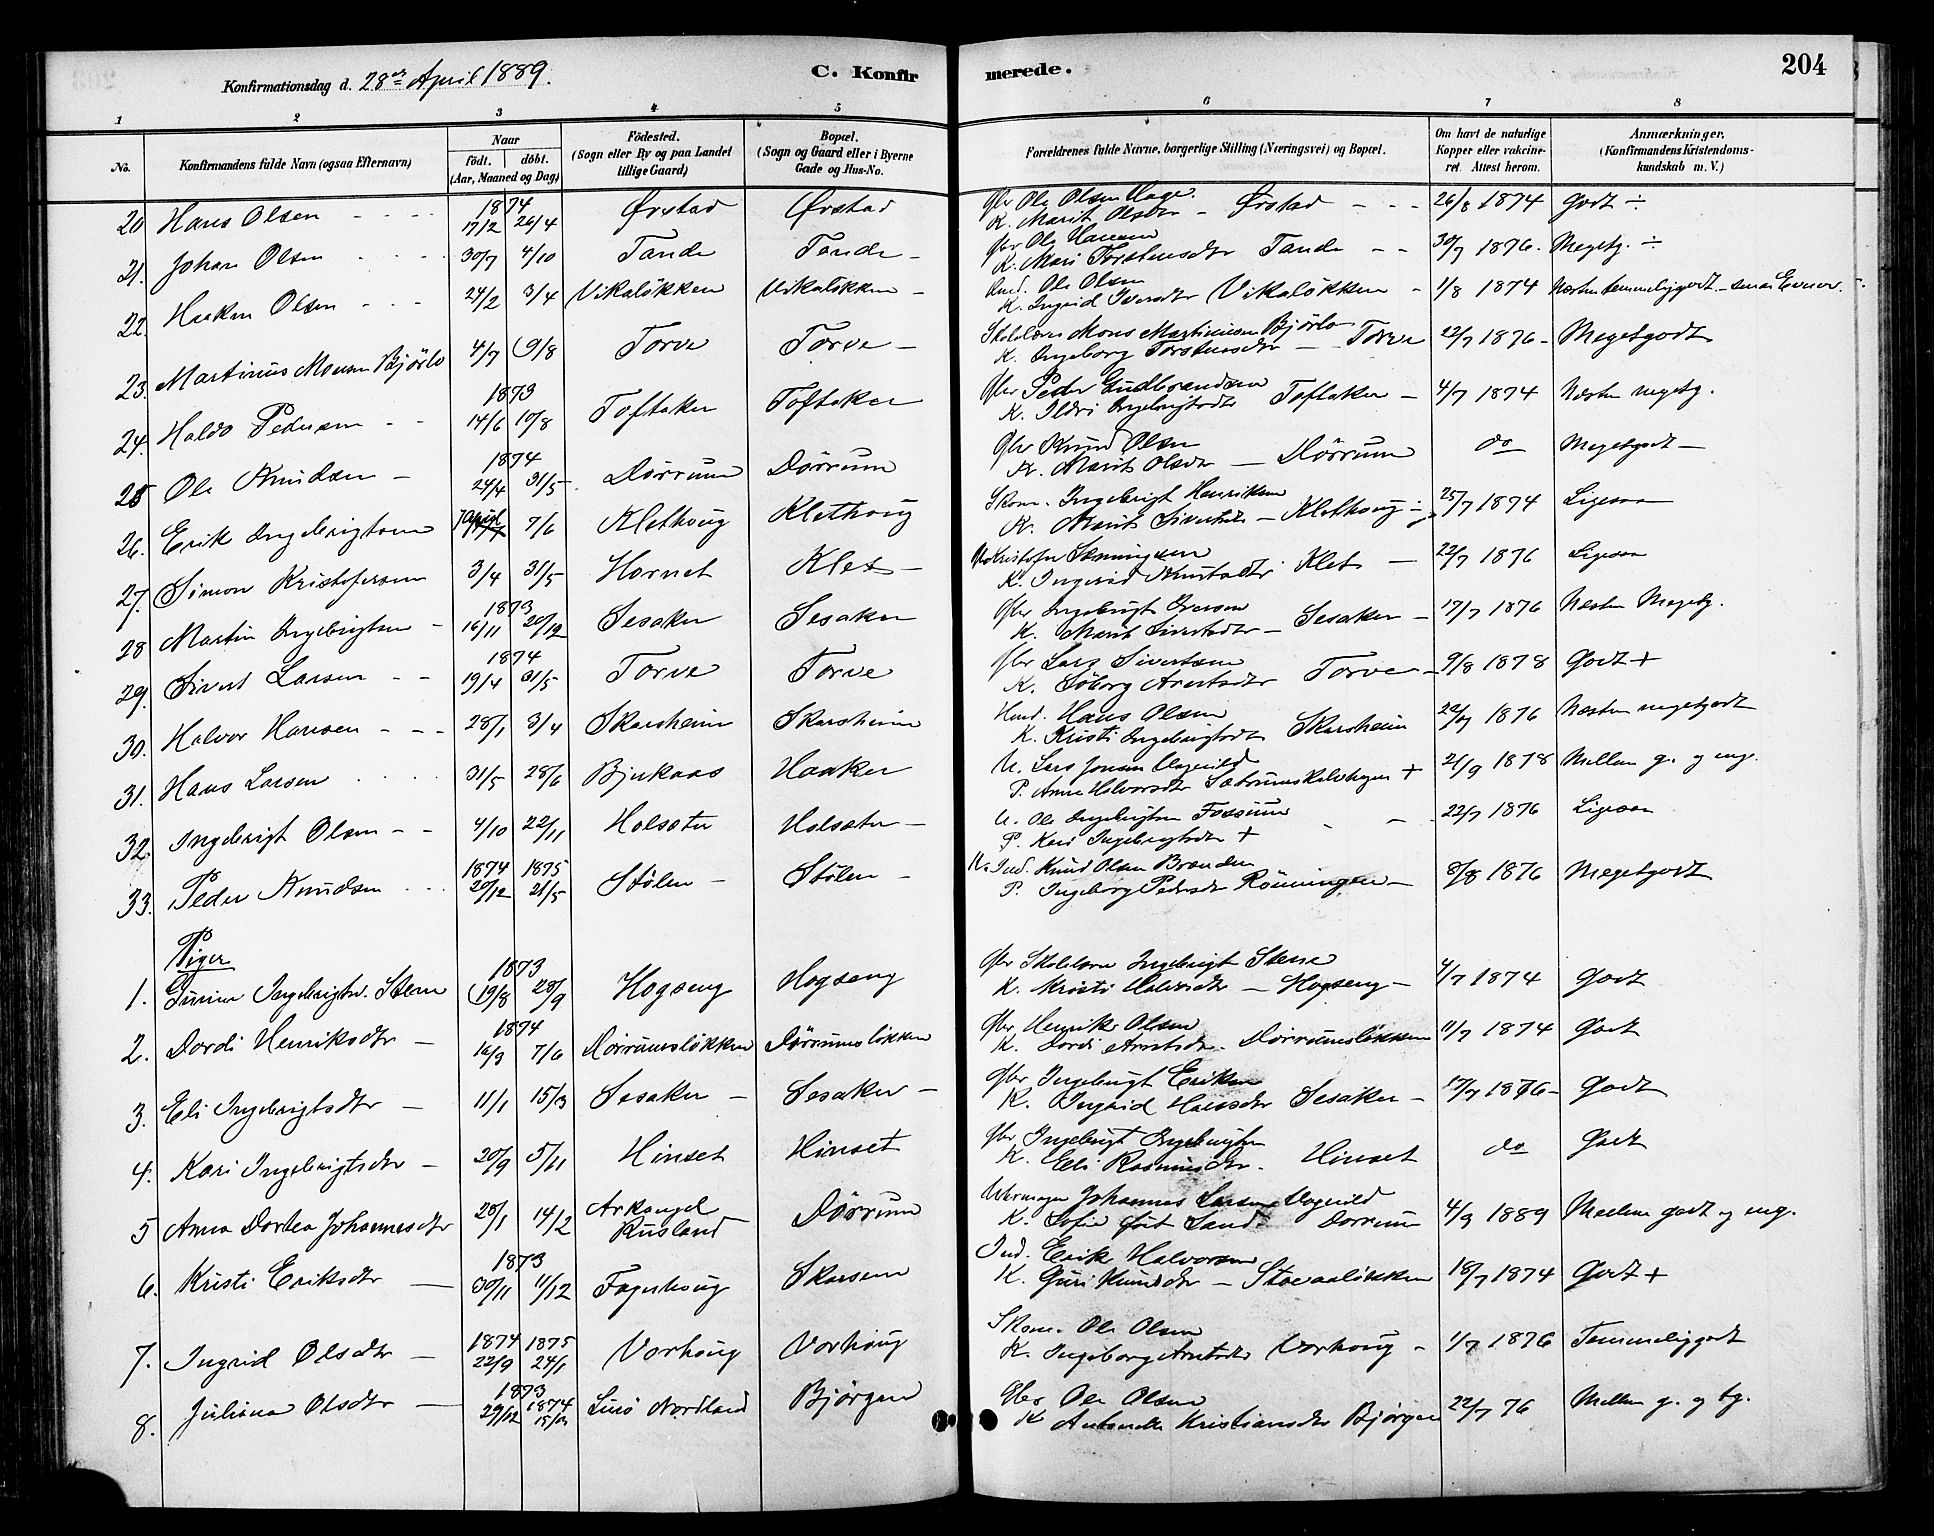 Konfirmationsdag d. 28de April 1889.
C. Konfirmerede.
204
1 2 3 4 5 6 7 8
No.
Konfirmandens fulde Navn (ogsaa Efternavn)
Naar
födt. döbt.
(Aar, Maaned og Dag)
Födested.
(Sogn eller By og paa Landet
tillige Gaard)
Bopæl.
(Sogn og Gaard eller i Byerne
Gade og Hus-No.
Forældrenes fulde Navne, borgerlige Stilling (Næringsvei) og Bopæl.
Om havt de naturlige
Kopper eller vakcine-
ret. Attest herom.
Anmærkninger,
(Konfirmandens Kristendoms-
kundskab m. V.)
1874
20 Hans Olsen 17/2 26/4 Ørstad Ørstad Gbr Ole Olsen Hage. K. Marit Olsdtr - Ørstad - 26/8 1874 Godt ÷
21. Johan Olsen 30/7 4/10 Tande Tande - Gbr Ole Hansen K. Mari Torstensdtr Tande - 30/7 1876 - Megetg. ÷
22. Haaken Olsen 24/2 3/4 Vikaløkken Vikaløkken - Ind. Ole Olsen K. Ingrid Iversdtr Vikaløkken - 1/8 1874 Næsten temmeliggodt - smaa Evner
23. Martinus Monsen Bjørlo 4/7 9/8 Torve Torve - Skolelærer Mons Martinusen Bjørlo K. Ingeborg Torstensdtr - Torve 22/7 1876 - Megetgodt
1873
24. Haldo Pedersen 14/6 10/8 Toftaker Toftaker Gbr Peder Gudbrandsen K. Ildri Ingebrigtsdtr Toftaker - 4/7 1874 Næsten megetg.
1874
25 Ole Knudsen - 24/4 31/5 Dørrum Dørrum Gbr Knud Olsen K. Marit Olsdtr - Dørrum do Megetgodt -
26. Erik Ingebrigtsen 7 April 7/6 Klethoug Klethoug Skom. Ingebrigt Henriksen K. Marit Sivertsdtr - Klethoug 25/7 1874 Ligesaa
27. Simon Kristofersen 3/4 31/5 Hornet Klet - Kristofer K. Ingerid Knutsdtr Klet - 22/7 1876 Ligesaa
1873
28 Martin Ingebrigtsen - 16/11 20/12 Sesaker Sesaker Gbr Ingebrigt Iversen K. Marit Sivertsdtr - Sesaker - 17/7 1876 Næsten Megetg.
1874
29. Sivert Larsen 19/4 31/5 Torve Torve Gbr Lars Sivertsen K. Søborg Arntsdtr Torve - 9/8 1878 Godt +
30. Halvor Hansen 28/1 3/4 Skarsheim Skarsheim Ind. Hans Olsen K. Kristi Ingebrigtsdtr Skarsheim 22/7 1876 Næsten megetgodt
31. Hans Larsen 31/5 28/6 Bjerkaas Haaker U. Lars Jonsen P. Anne Halvorsdtr + 21/9 1878 Mellem g. og mg.
32. Ingebrigt Olsen 4/10 22/11 Holsæter Holsæter - U. Ole Ingebrigtsen Fossum P. Kari Ingebrigtsdtr + 22/7 1876 Ligesaa
1874 1875
33. Peder Knudsen 20/12 21/5 Stølen - Stølen - Ind. Knud Olsen Brænden P. Ingeborg Pedersdtr Rønningen - 8/8 1876 Megetgodt
Piger
1873
1. Gurine Ingebrigtsd. Stene 19/8 28/9 Hogseng Hogseng Gbr Skolelærer Ingebrigt Stene K. Kristi Halvorsdtr - Hogseng - 4/7 1874 Godt
1874
2. Dordi Henriksdtr - 16/3 7/6 Dørrumsløkken Dørrumsløkken Gbr Henrik Olsen K. Dordi Arntsdtr. Dørrumsløkken 11/7 1874 Godt
3. Eli Ingebrigtsdtr - 11/1 15/3 Sesaker - Sesaker - Gbr Ingebrigt Eriksen K. Ingrid Sesaker - 17/7 1876 - Godt
4. Kari Ingebrigtsdtr - 20/9 5/11 Hinset Hinset Gbr Ingebrigt Ingebrigtsen K. Eli Rasmusdtr. Hinset do Godt
5 Anna Dortea Johannesdtr 28/1 14/2 Arkangel Rusland Dørrum Johannes Larsen K. Sofie født Sand Dørrum 4/3 1889 Mellem godt og mg.
1873
6. Kristi Eriksdtr - 30/11 11/12 Fagerhoug Skarsem Ind. Erik Halvorsen K. Guri Knudsdtr - 18/7 1874 Godt +
1874 1875
7. Ingrid Olsdtr - 22/9 24/1 Vorhoug Vorhoug Skom. Ole Olsen K. Ingeborg Arntsdtr Vorhoug - 1/7 1876 Temmeliggodt
1873 1874
8. Juliana Olsdtr - 29/12 15/3 Nordland Bjørgen Gbr Ole Olsen K Kristiansdtr Bjørgen 22/7 76 Mellem g. og tg.